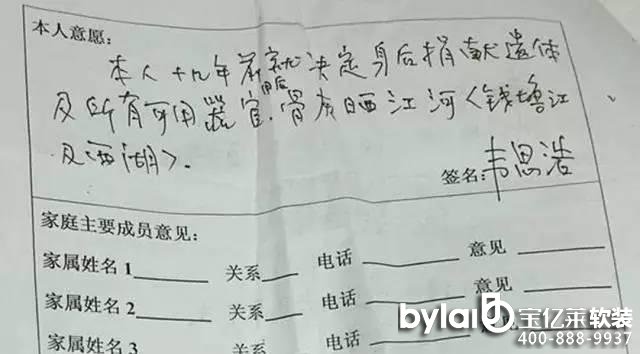 本人意愿:
本人十九年前就决定身后捐献遗体
用后
及所有可用器官.骨灰晒江河<钱塘江
及西湖>.
签名:韦思浩
家庭主要成员意见:
家属姓名1 关系 电话 意见
家属姓名2 关系 电话 意见
家属姓名3 关系 电话
bylai 宝亿莱软装
400-888-9937